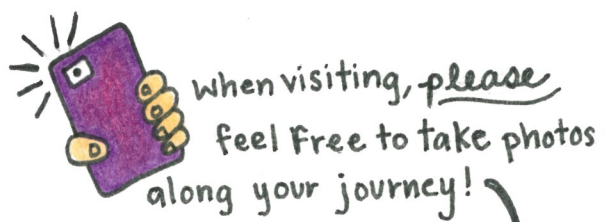 when visiting, please
feel free to take photos
along your journey!